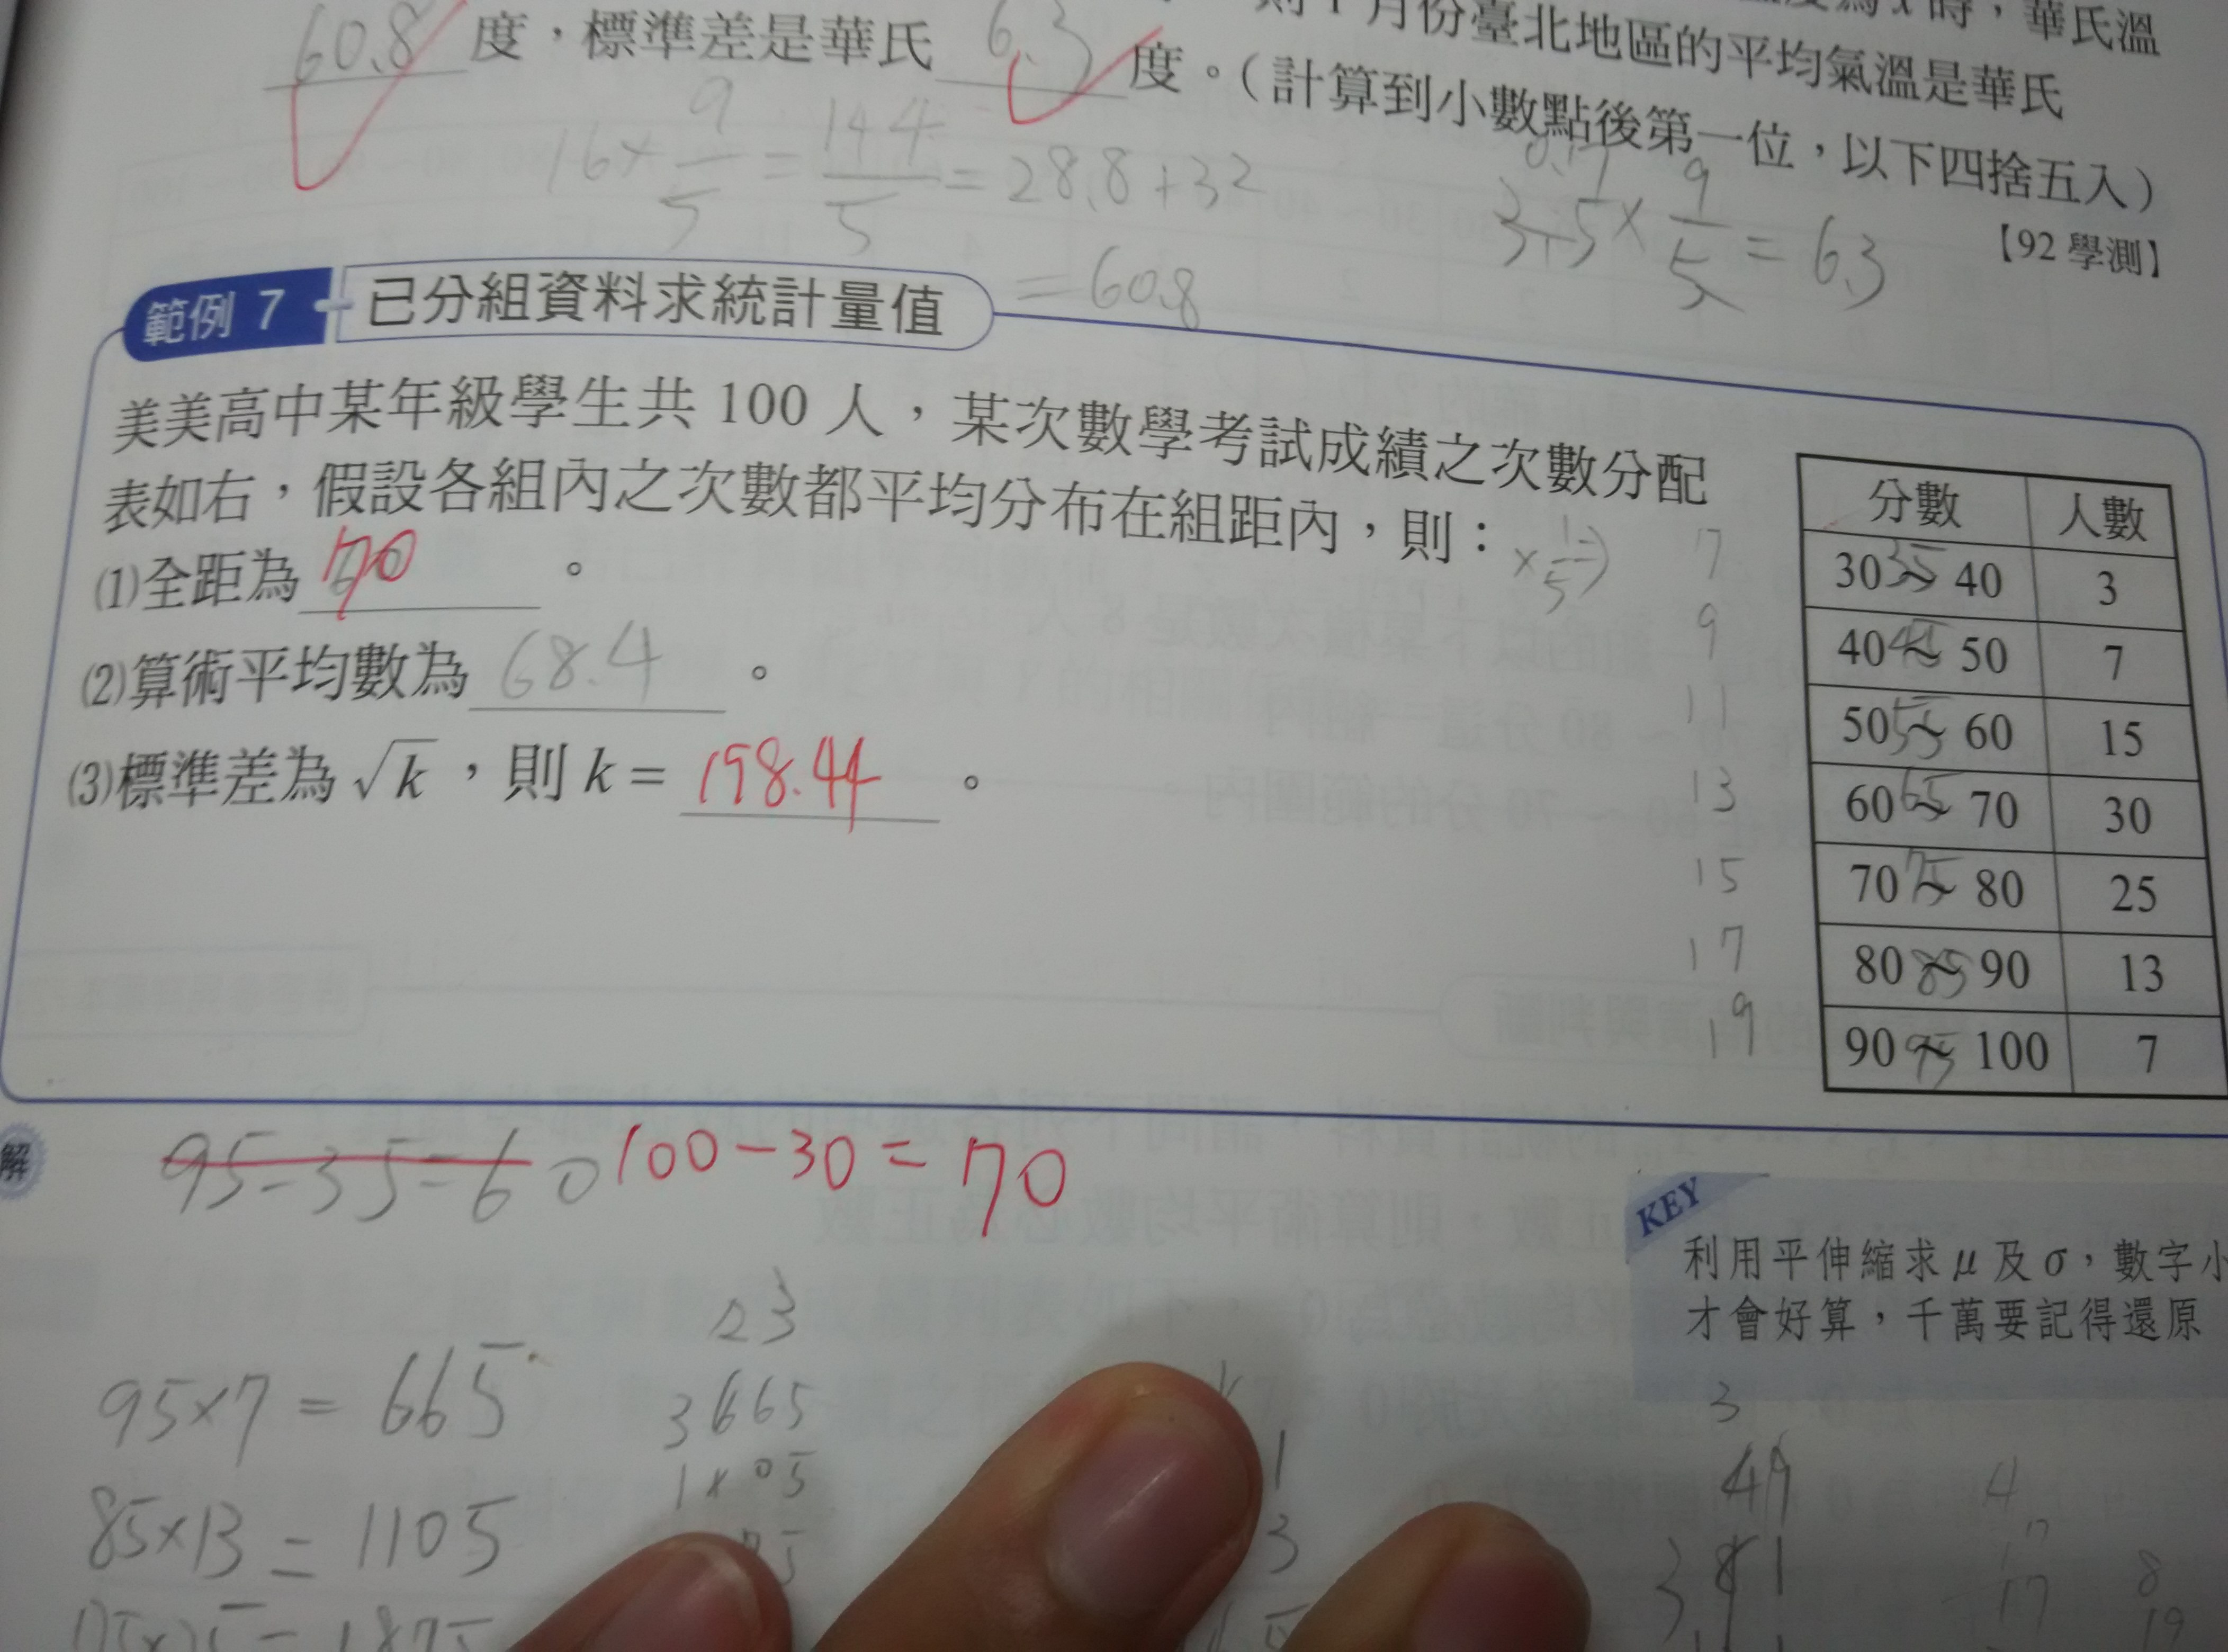 時，華氏溫
月份臺北地區的平均氣溫是華氏
60.8 度，標準差是華氏 6.3 度。（計算到小數點後第一位，以下四捨五入）
【92 學測】
16×9/5 = 144/5 = 28.8+32
= 60.8
3.5×9/5 = 6.3
範例 7 已分組資料求統計量值
美美高中某年級學生共 100 人，某次數學考試成績之次數分配
表如右，假設各組內之次數都平均分布在組距內，則：
×1/5
⑴全距為 70 。
⑵算術平均數為 68.4 。
⑶標準差為 √k，則 k = 198.44 。
7
9
11
13
15
17
19
分數 人數
30 ~ 40 35 3
40 ~ 50 45 7
50 ~ 60 55 15
60 ~ 70 65 30
70 ~ 80 75 25
80 ~ 90 85 13
90 ~ 100 95 7
解
95-35=60 100-30=70
KEY
利用平伸縮求 μ 及 σ，數字小
才會好算，千萬要記得還原
23
95×7 = 665
3665
85×13 = 1105
1
3
3
49
4
17
8
19